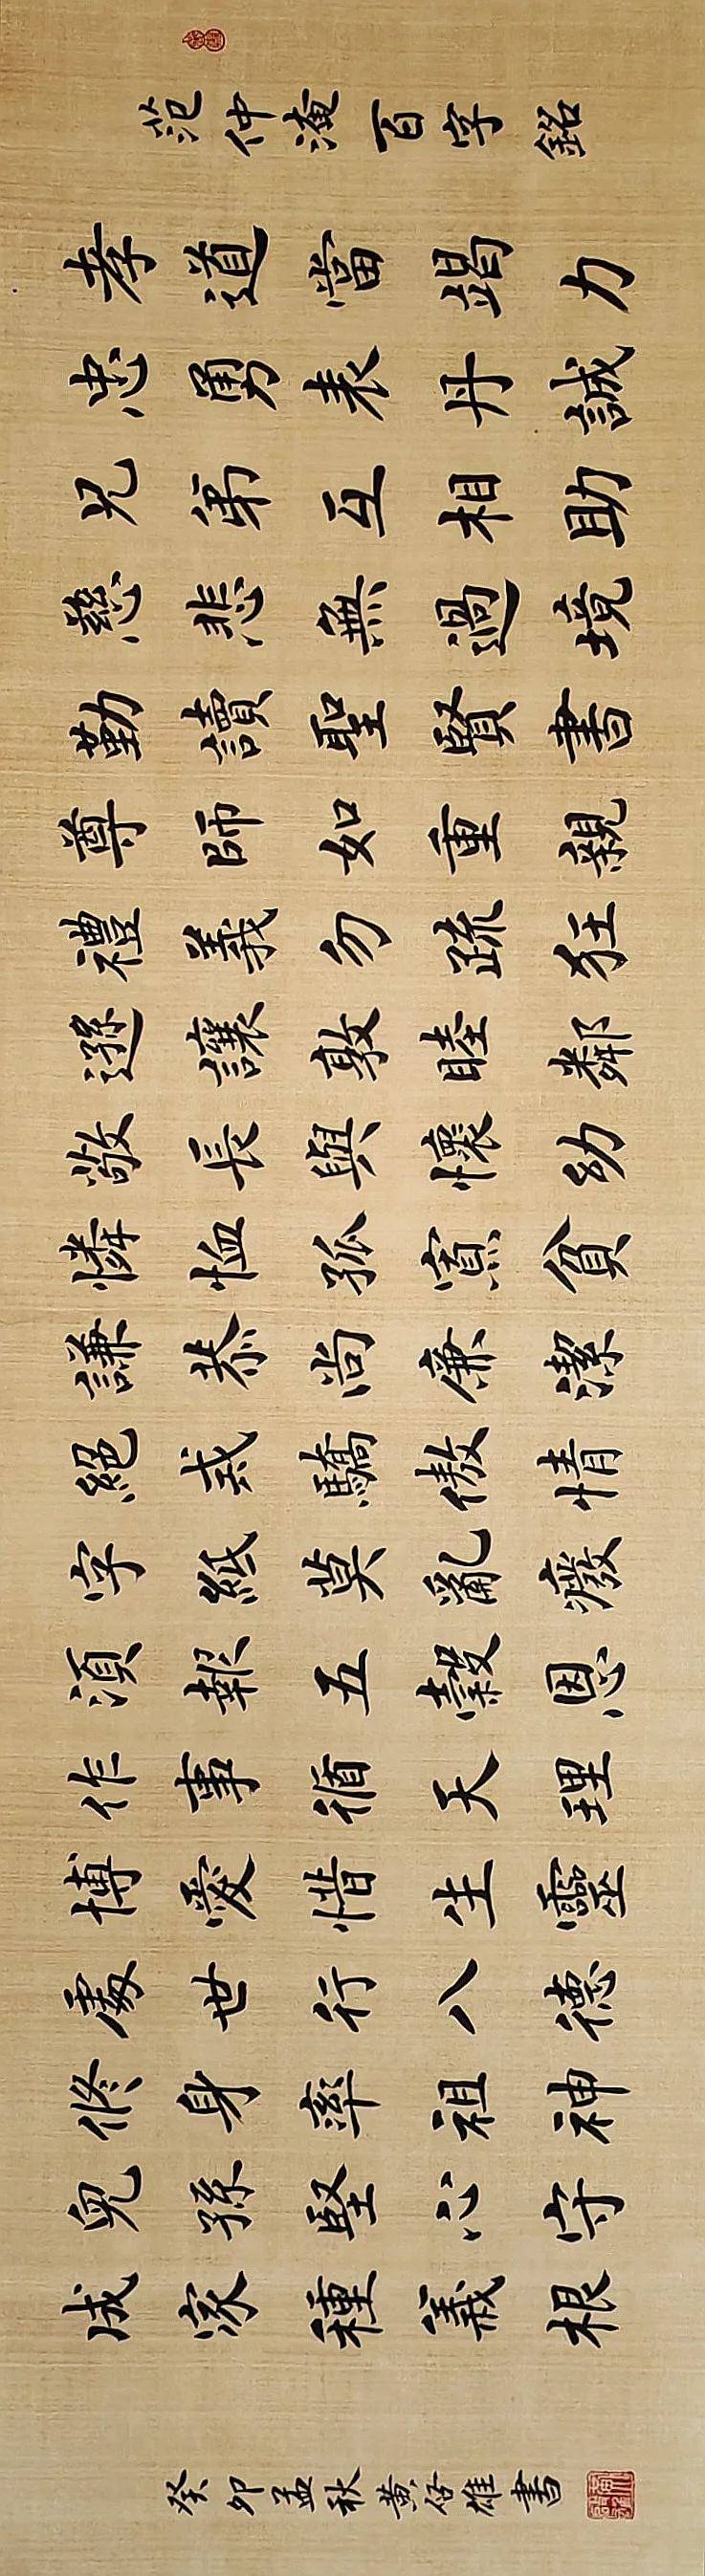 范仲淹百字銘
孝道當竭力
忠勇表丹誠
兄弟互相助
慈悲無過境
勤讀聖賢書
尊師如重親
禮義勿疏狂
遜讓敦睦鄰
敬長與懷幼
憐恤孤寡貧
謙恭尚廉潔
絕戒驕傲情
字紙莫亂廢
須報五穀恩
作事循天理
博愛惜生靈
處世行八德
修身率祖神
兒孫堅心守
成家種義根
癸卯孟秋黃雄書